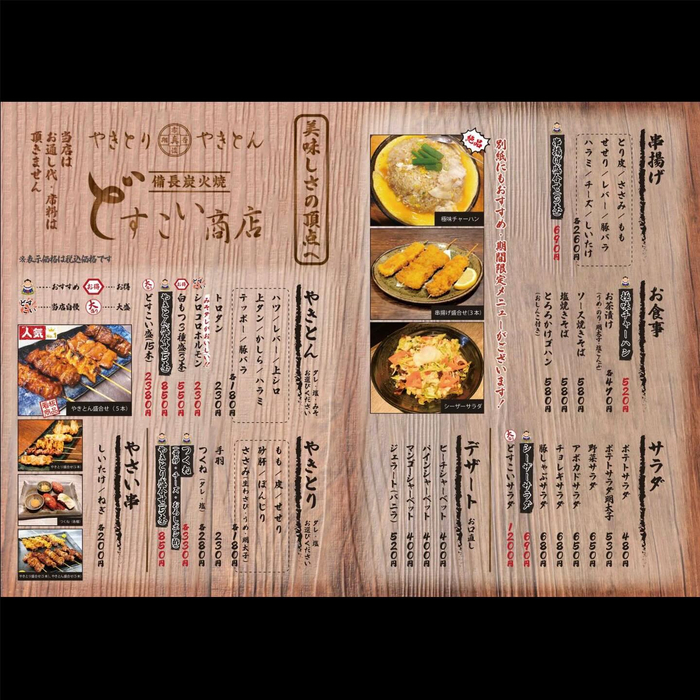 美味しさの頂点へ
やきとり やきとん
備長炭火焼
どすこい商店
当店は
お通し代・席料は
頂きません
※表示価格は税込価格です
…おすすめ
お得…お得
どすこい…当店自慢
大…大盛
人気
やきとん盛合せ(5本)
やきとん タレ・塩・みそ
お選びください
ハツ/レバー/上シロ
上タン/かしら/ハラミ
テッポー/豚バラ
各180円
トロタン 230円
みそダレがおいしい!!
シロコロホルモン 230円
白もつ3種盛(3本) 550円
やきとん盛合せ(5本) 850円
どすこい盛(15本) 2380円
やきとり タレ・塩
お選びください
もも/皮/せせり
砂肝/ぼんじり
ささみ(生わさび・うめ・明太子)
各180円
手羽 230円
つくね(タレ・塩) 各280円
つくね
各330円
やきとり盛合せ(5本) 850円
やさい串
しいたけ/ねぎ 各200円
串揚げ
とり皮/ささみ/もも
せせり/レバー/豚バラ
ハラミ/チーズ/しいたけ
各260円
串揚げ盛合せ(3本) 690円
絶品
別紙にもおすすめ・期間限定メニューがございます!
極味チャーハン
串揚げ盛合せ(3本)
シーザーサラダ
お食事
極味チャーハン 520円
お茶漬け
(うめ・のり・明太子・塩こんぶ) 各490円
ソース焼きそば 580円
塩焼きそば 580円
とろろかけゴハン
(おしんこ付き) 580円
サラダ
ポテトサラダ 480円
ポテトサラダ明太子 530円
野菜サラダ 450円
アボカドサラダ 650円
チョレギサラダ 680円
豚しゃぶサラダ 680円
シーザーサラダ 690円
どすこいサラダ 1200円
デザート お口直し
ピーチシャーベット 400円
パインシャーベット 400円
マンゴーシャーベット 400円
ジェラート(バニラ) 400円